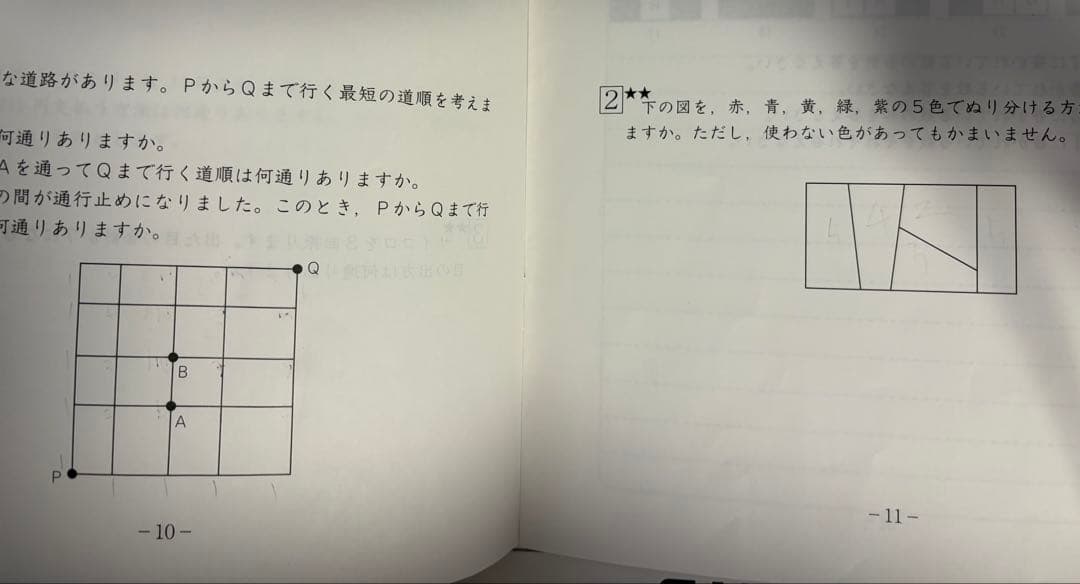 な道路があります。PからQまで行く最短の道順を考えま
何通りありますか。
Aを通ってQまで行く道順は何通りありますか。
の間が通行止めになりました。このとき，PからQまで行
何通りありますか。
Q
B
A
P
－10－
2 ★★ 下の図を，赤，青，黄，緑，紫の5色でぬり分ける方
ますか。ただし，使わない色があってもかまいません。
－11－